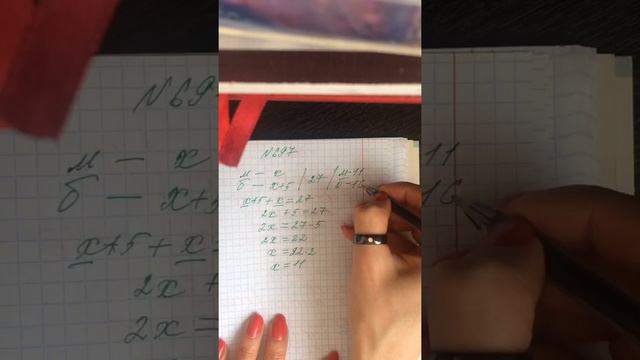 N697
м — x | 27 | м-11
б — x+5 | б-16
x+5+x=27
2x+5=27
2x=27-5
2x=22
x=22:2
x=11